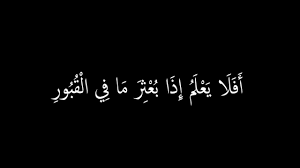 أَفَلَا يَعْلَمُ إِذَا بُعْثِرَ مَا فِي الْقُبُورِ